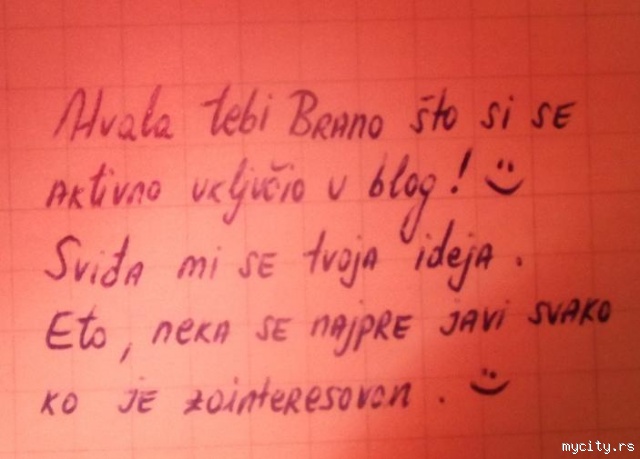 Hvala tebi Brano što si se
aktivno uključio u blog! :)
Sviđa mi se tvoja ideja.
Eto, neka se najpre javi svako
ko je zainteresovan. :)
mycity.rs